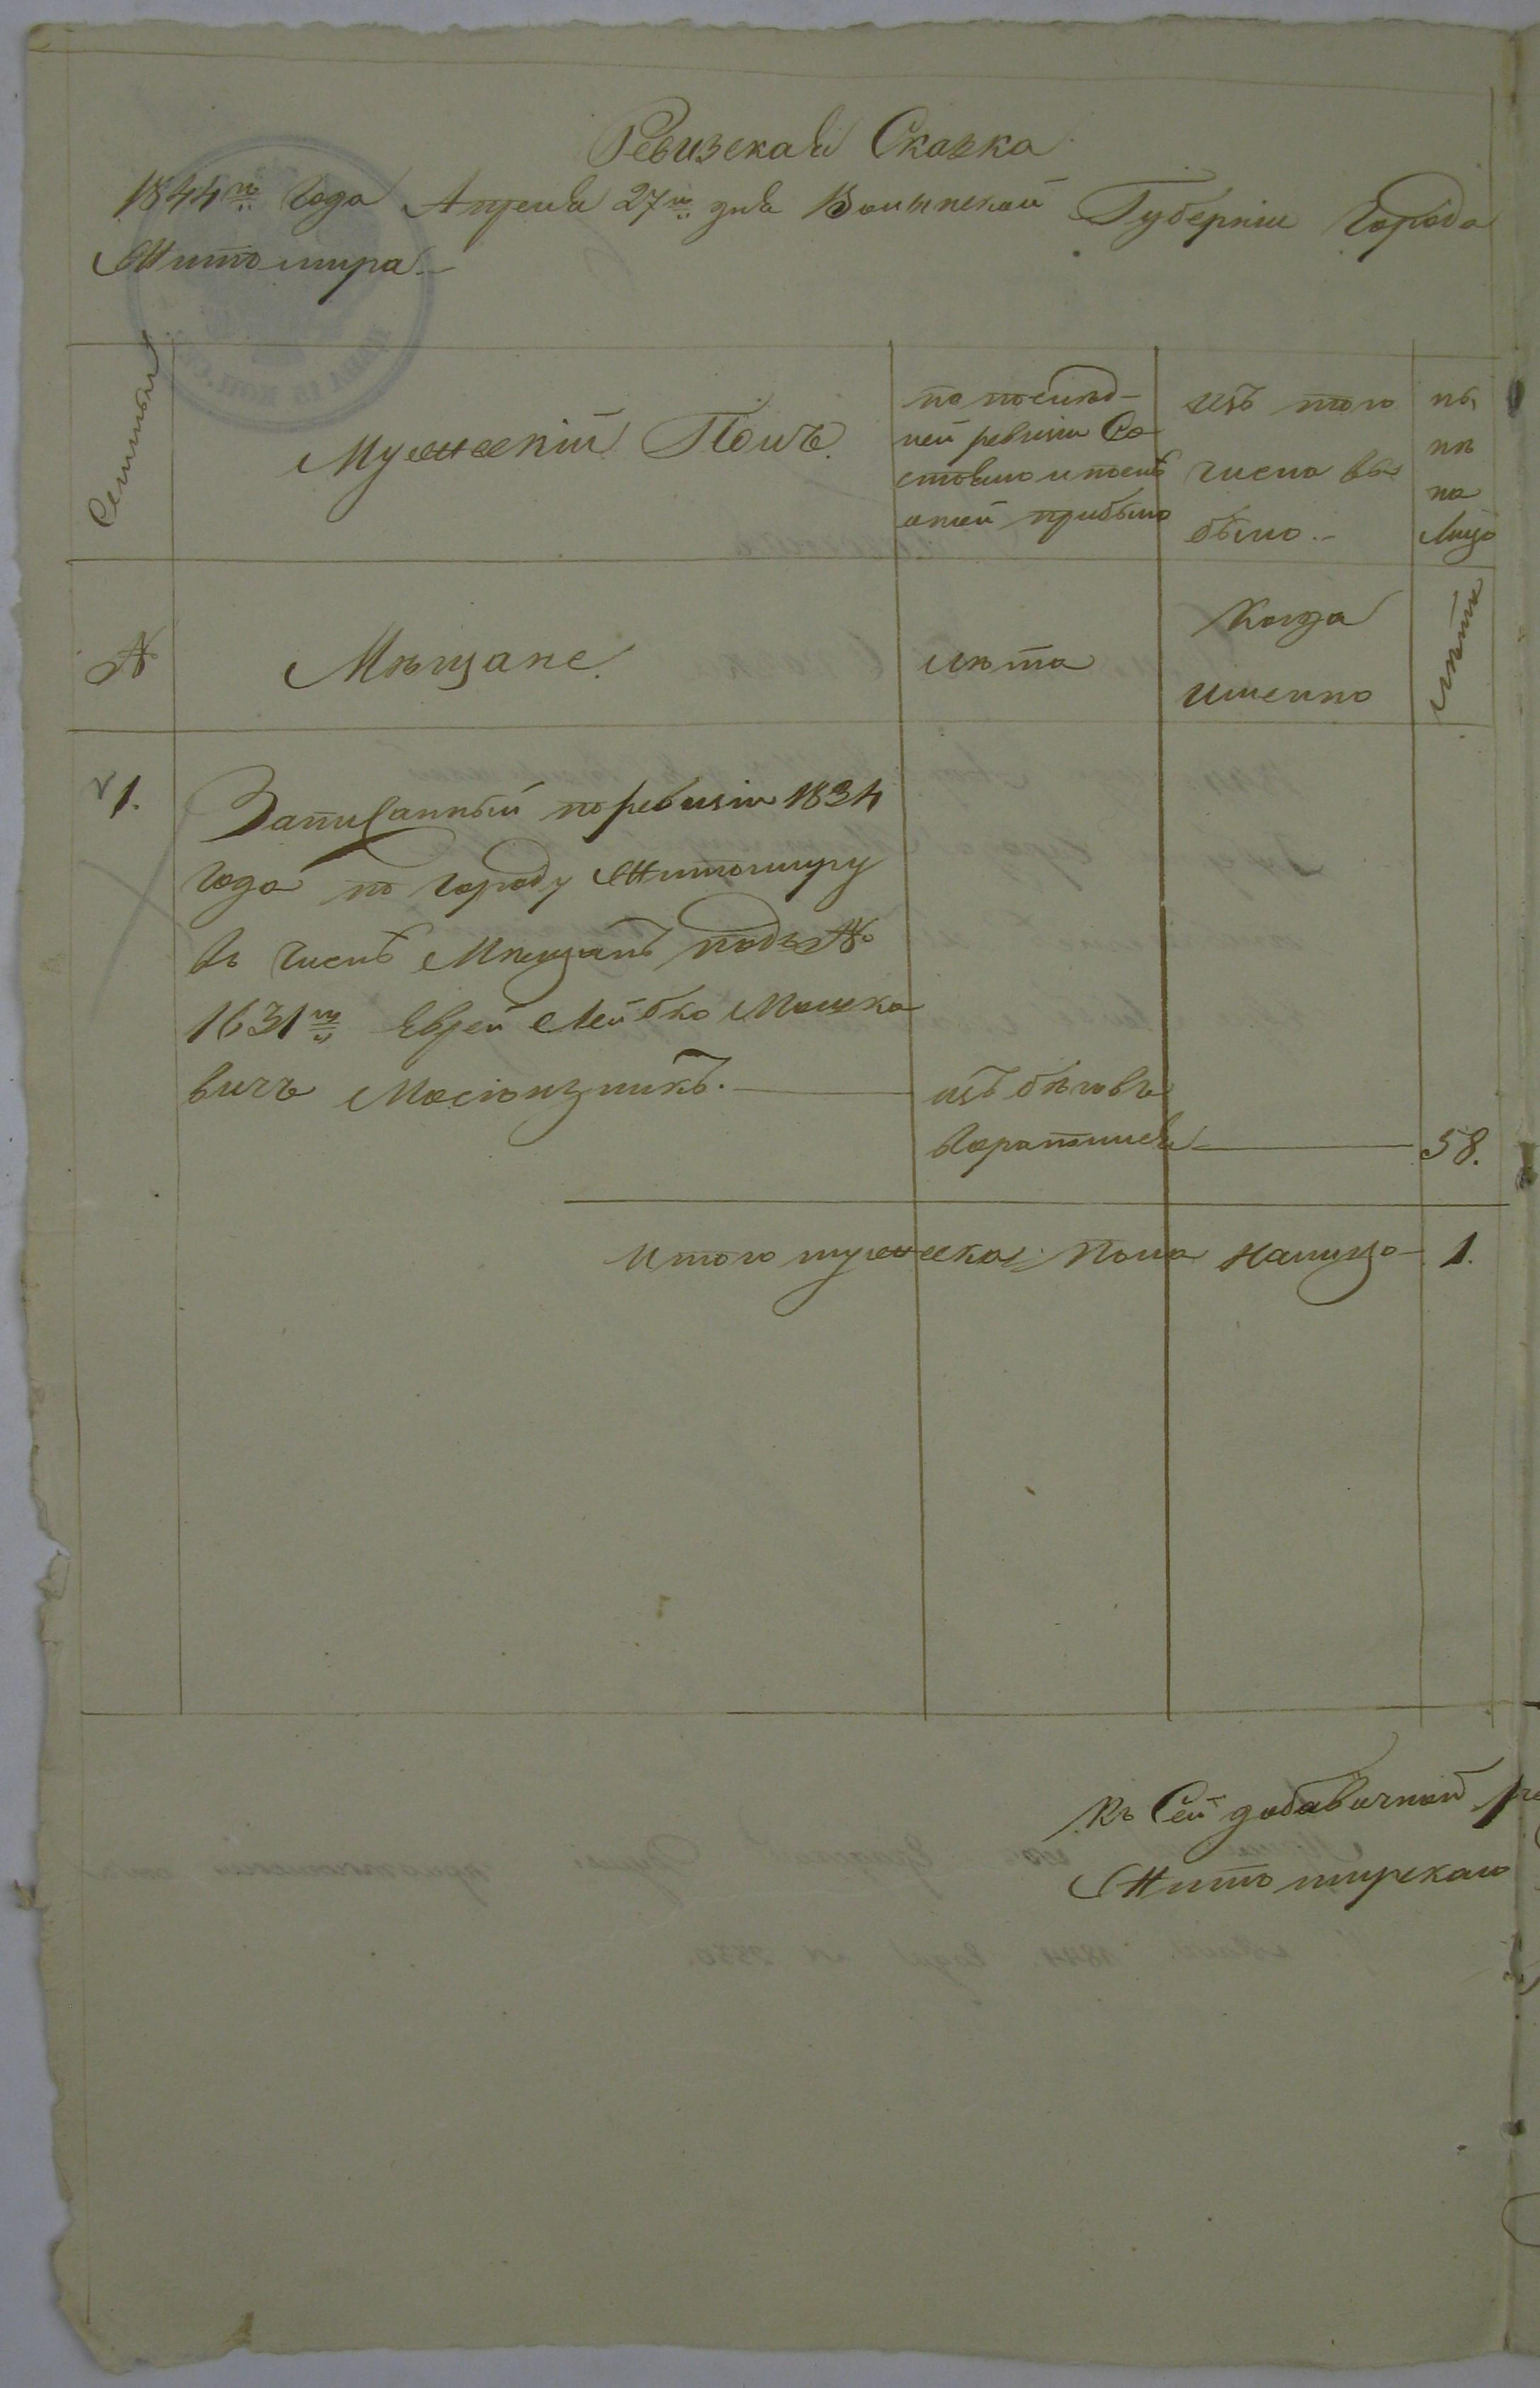 Ревизская Сказка
1844го Года Апреля 27го дня Волынской Губерніи Города
Житомира
Семьи
Мужескій Полъ.
по послѣд-
ней ревизіи Со
стояло и послѣ
оной прибыло
изъ того
числа вы
было
ны
нѣ
на
Лицо
№
Мѣщане.
лѣта
Когда
именно
лѣта
1.
Записанный по ревизіи 1834
года по городу Житомиру
въ числѣ Мѣщанъ подъ №
1631м Еврей Лейбко Мошко
вичъ
изъ бѣговъ
воратился
58.
Итого мужеска пола налицо
1.
Къ Сей добавочной ре
Житомирскаго